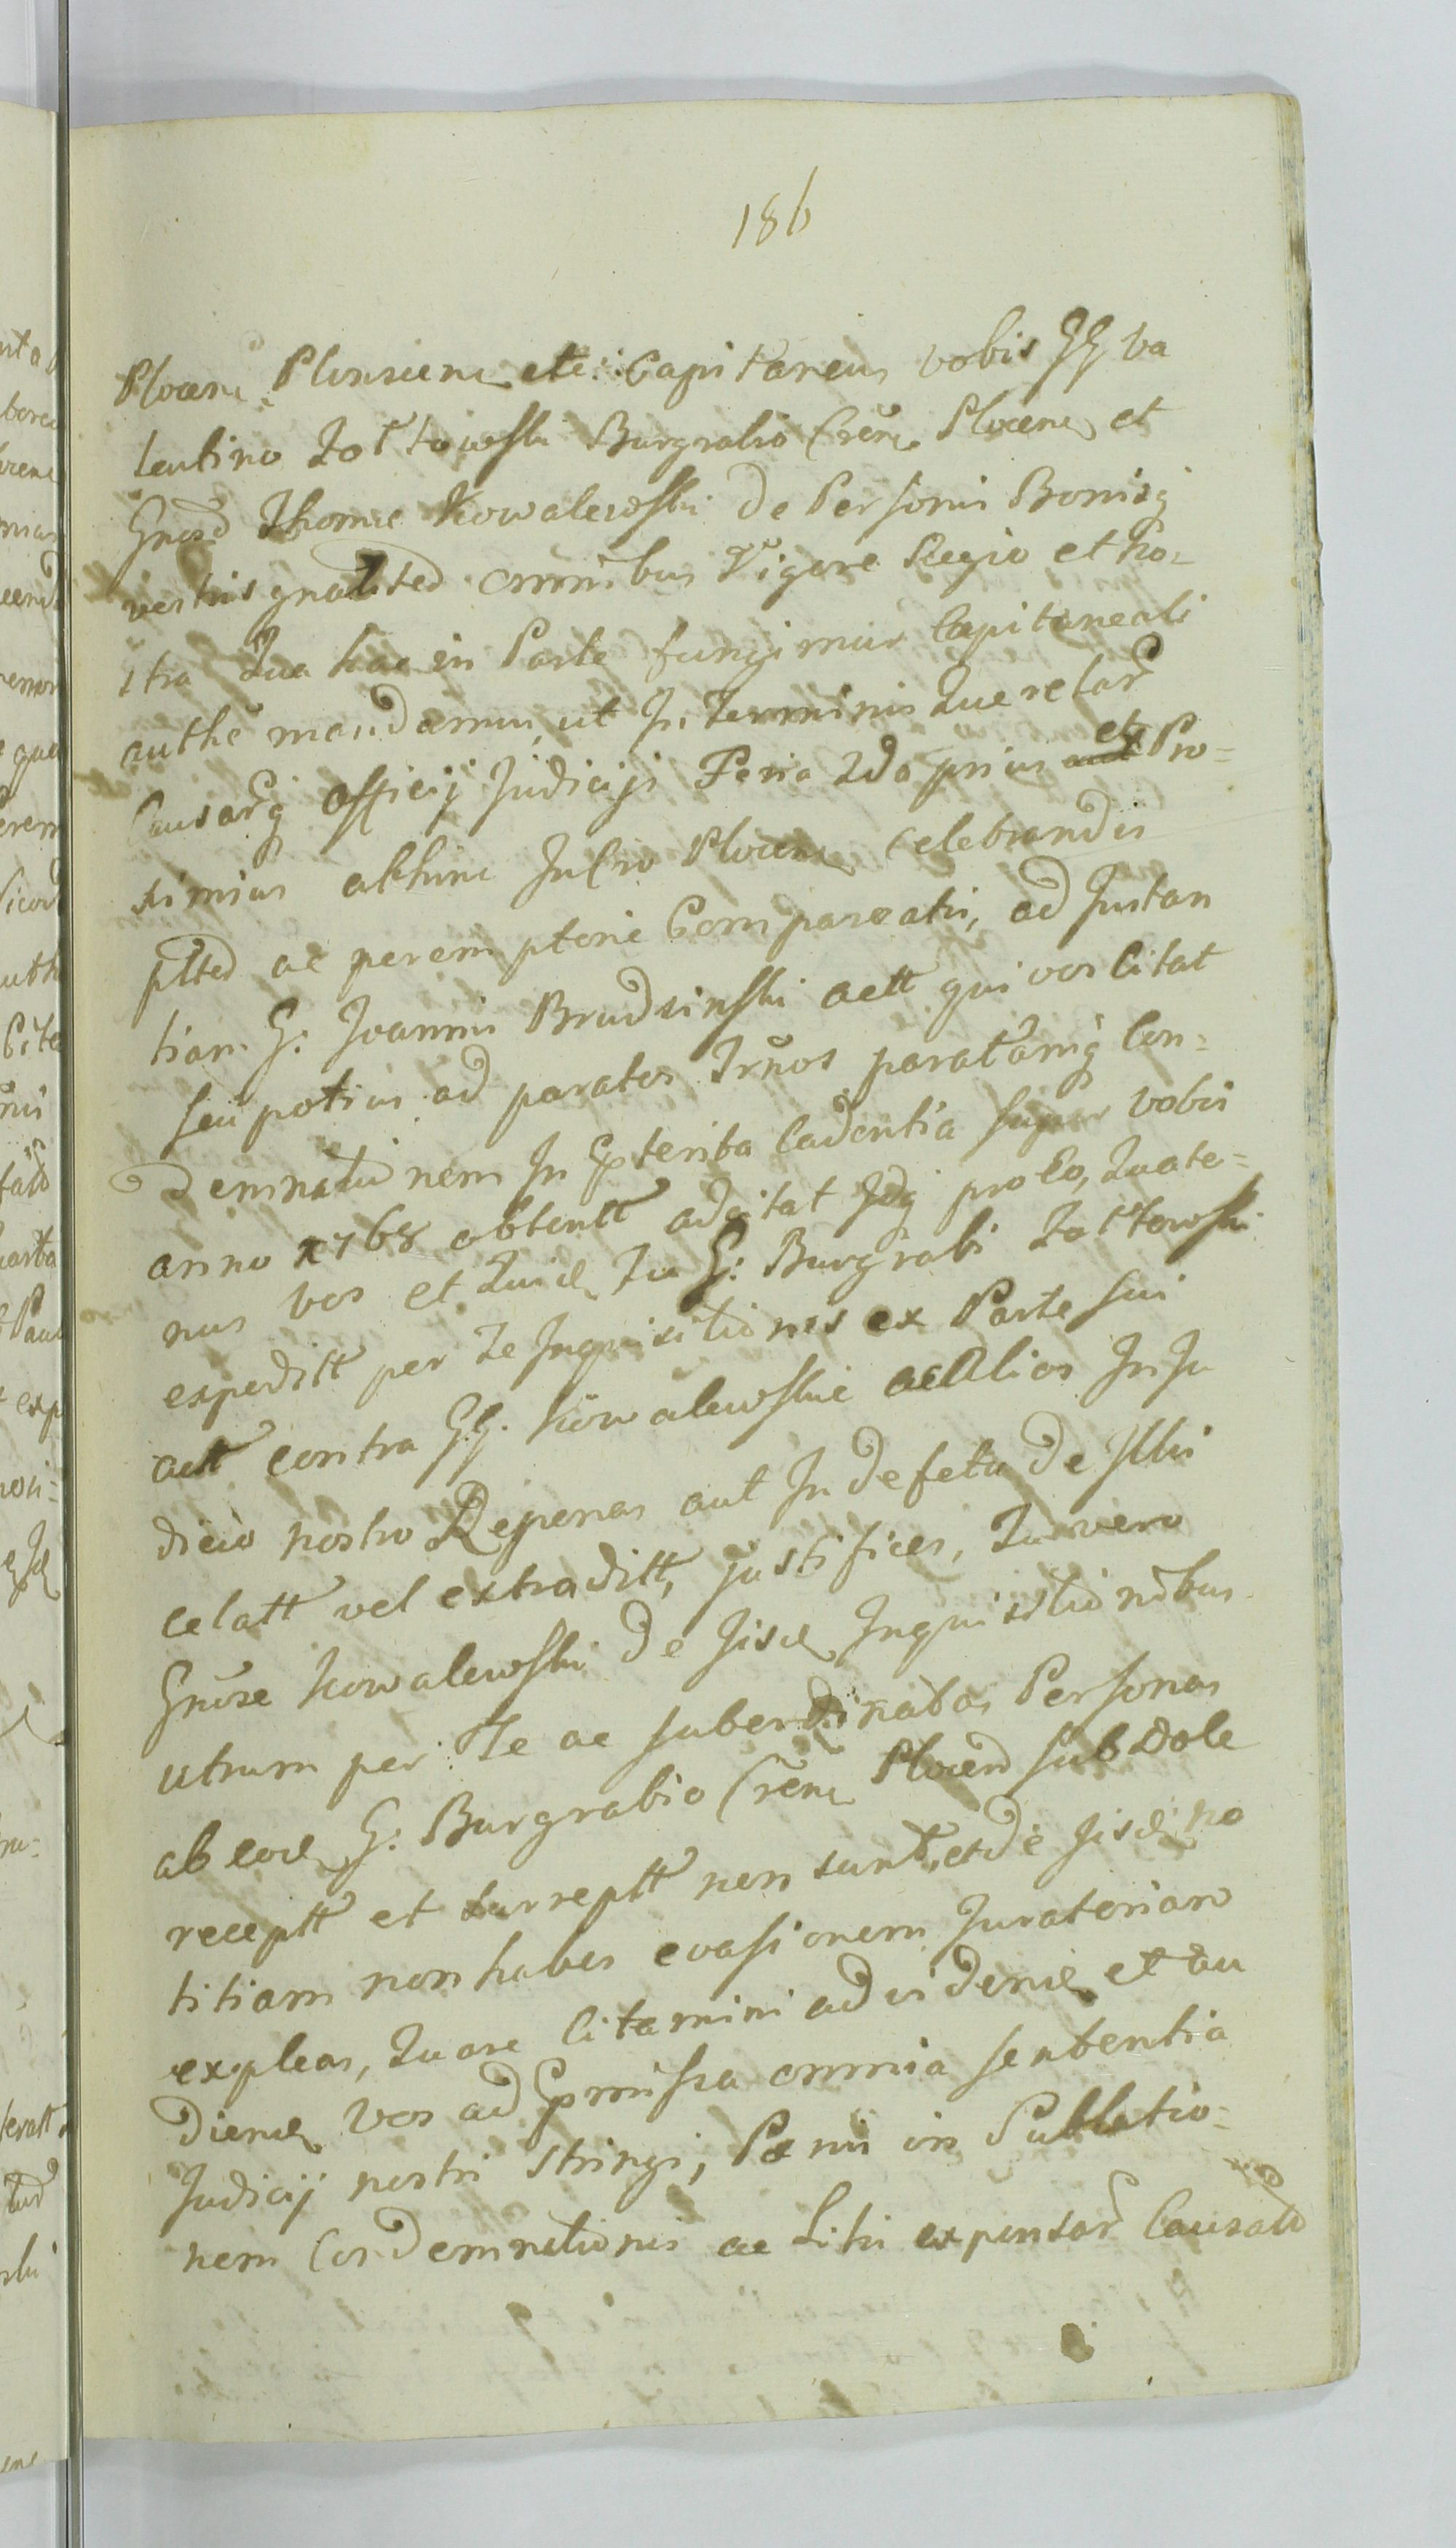 186
Plocen: Plonscien etc: Capitaneus vobis GG Va
lentino Zottowski Burgrabio Cren Plocen et
Gnoso Thomæ Kowalewski de Personis Bonisq
vestris gnaliter omnibus Vigore Regio et No=
stra Qua hac in Parte fungimur Capitaneali
authe mandamus, ut In Terminis Querelar
Causarq Officij Judicijs Feria 2da prius et Pro=
ximius abhinc In Cro Plocen Celebrandis
pltr ac peremptorie Compareatis, ad Instan
tiam G: Joannis Brudzinski actt qui vos Citat
seu potius ad paratos Trnos paratamq Con=
demnationem In Præterita Cadentia super vobis
anno 1768 obtentt adcitat Idq pro Eo, Quate=
nus vos et Quid Tu G: Burgrabi Zottowski
expeditt per Te Inquisitiones ex Parte sui
actt contra GG. Kowalewskie ac Alios In Ju
dicio nostro Reponas aut In defectu de Illis
celatt vel extraditt, justifices, Tu vero
Gnose Kowalewski de Iisd Inquisitionibus
utrum per Te ac subordinatas Personas
ab eod G: Burgrabio Cren Plocen sub Dole
receptt et surreptt non sunt, et de Iisd no
titiam non habes evasionem Juratoriam
expleas, Quare Citamini ad vidend et au
diend vos ad Præmissa omnia sententia
Judicij nostri stringi, Pænis in Publicatio=
nem Condemnationis ac Litis expensar Causatt